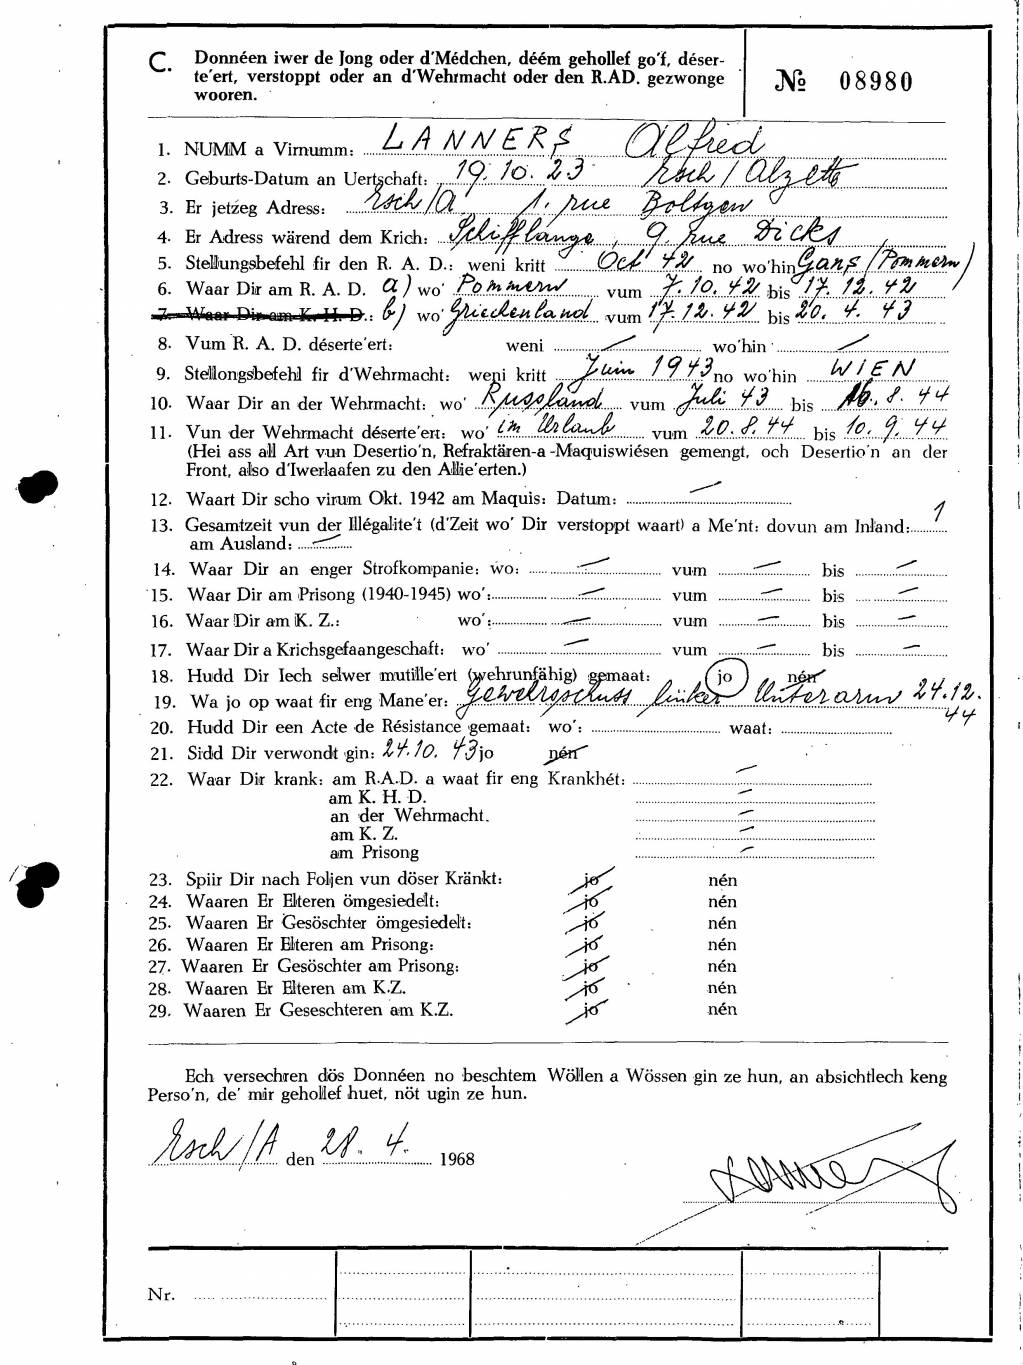 C. Donnéen iwer de Jong oder d'Médchen, déém gehollef go'f, déser-
te'ert, verstoppt oder an d'Wehrmacht oder den R.AD. gezwonge
wooren.
№ 08980
1. NUMM a Virnumm: LANNERS Alfred
2. Geburts-Datum an Uertschaft: 19.10.23 Esch/Alzette
3. Er jetzeg Adress: Esch/A 1. rue Boltgen
4. Er Adress wärend dem Krich: Schifflange, 9, rue Dicks
5. Stellungsbefehl fir den R. A. D.: weni kritt Oct 42 no wo'hin Gans (Pommern)
6. Waar Dir am R. A. D. a) wo' Pommern vum 7.10.42 bis 17.12.42
7. Waar Dir am K. H. D.: b) wo' Griechenland vum 17.12.42 bis 20.4.43
8. Vum R. A. D. déserte'ert: weni — wo'hin —
9. Stellongsbefehl fir d'Wehrmacht: weni kritt Juin 1943 no wo'hin WIEN
10. Waar Dir an der Wehrmacht: wo' Russland vum Juli 43 bis 16.8.44
11. Vun der Wehrmacht déserte'ert: wo' im Urlaub vum 20.8.44 bis 10.9.44
(Hei ass all Art vun Desertio'n, Refraktären-a -Maquiswiésen gemengt, och Desertio'n an der
Front, also d'Iwerlaafen zu den Allie'erten.)
12. Waart Dir scho virum Okt. 1942 am Maquis: Datum: —
13. Gesamtzeit vun der Illégalite't (d'Zeit wo' Dir verstoppt waart) a Me'nt: dovun am Inland: 1
am Ausland: —
14. Waar Dir an enger Strofkompanie: wo: — vum — bis —
15. Waar Dir am Prisong (1940-1945) wo': — vum — bis —
16. Waar Dir am K. Z.: wo': — vum — bis —
17. Waar Dir a Krichsgefaangeschaft: wo' — vum — bis —
18. Hudd Dir Iech selwer mutille'ert (wehrunfähig) gemaat: jo nén
19. Wa jo op waat fir eng Mane'er: Gewehrschuss linker Unterarm 24.12.
44
20. Hudd Dir een Acte de Résistance gemaat: wo': waat:
21. Sidd Dir verwondt gin: 24.10.43 jo nén
22. Waar Dir krank: am R.A.D. a waat fir eng Krankhét: —
am K. H. D. —
an der Wehrmacht. —
am K. Z. —
am Prisong —
23. Spiir Dir nach Foljen vun döser Kränkt: jo nén
24. Waaren Er Elteren ömgesiedelt: jo nén
25. Waaren Er Gesöschter ömgesiedelt: jo nén
26. Waaren Er Elteren am Prisong: jo nén
27. Waaren Er Gesöschter am Prisong: jo nén
28. Waaren Er Elteren am K.Z. jo nén
29. Waaren Er Geseschteren am K.Z. jo nén
Ech versechren dös Donnéen no beschtem Wöllen a Wössen gin ze hun, an absichtlech keng
Perso'n, de' mir gehollef huet, nöt ugin ze hun.
Esch/A den 28. 4. 1968
Nr.